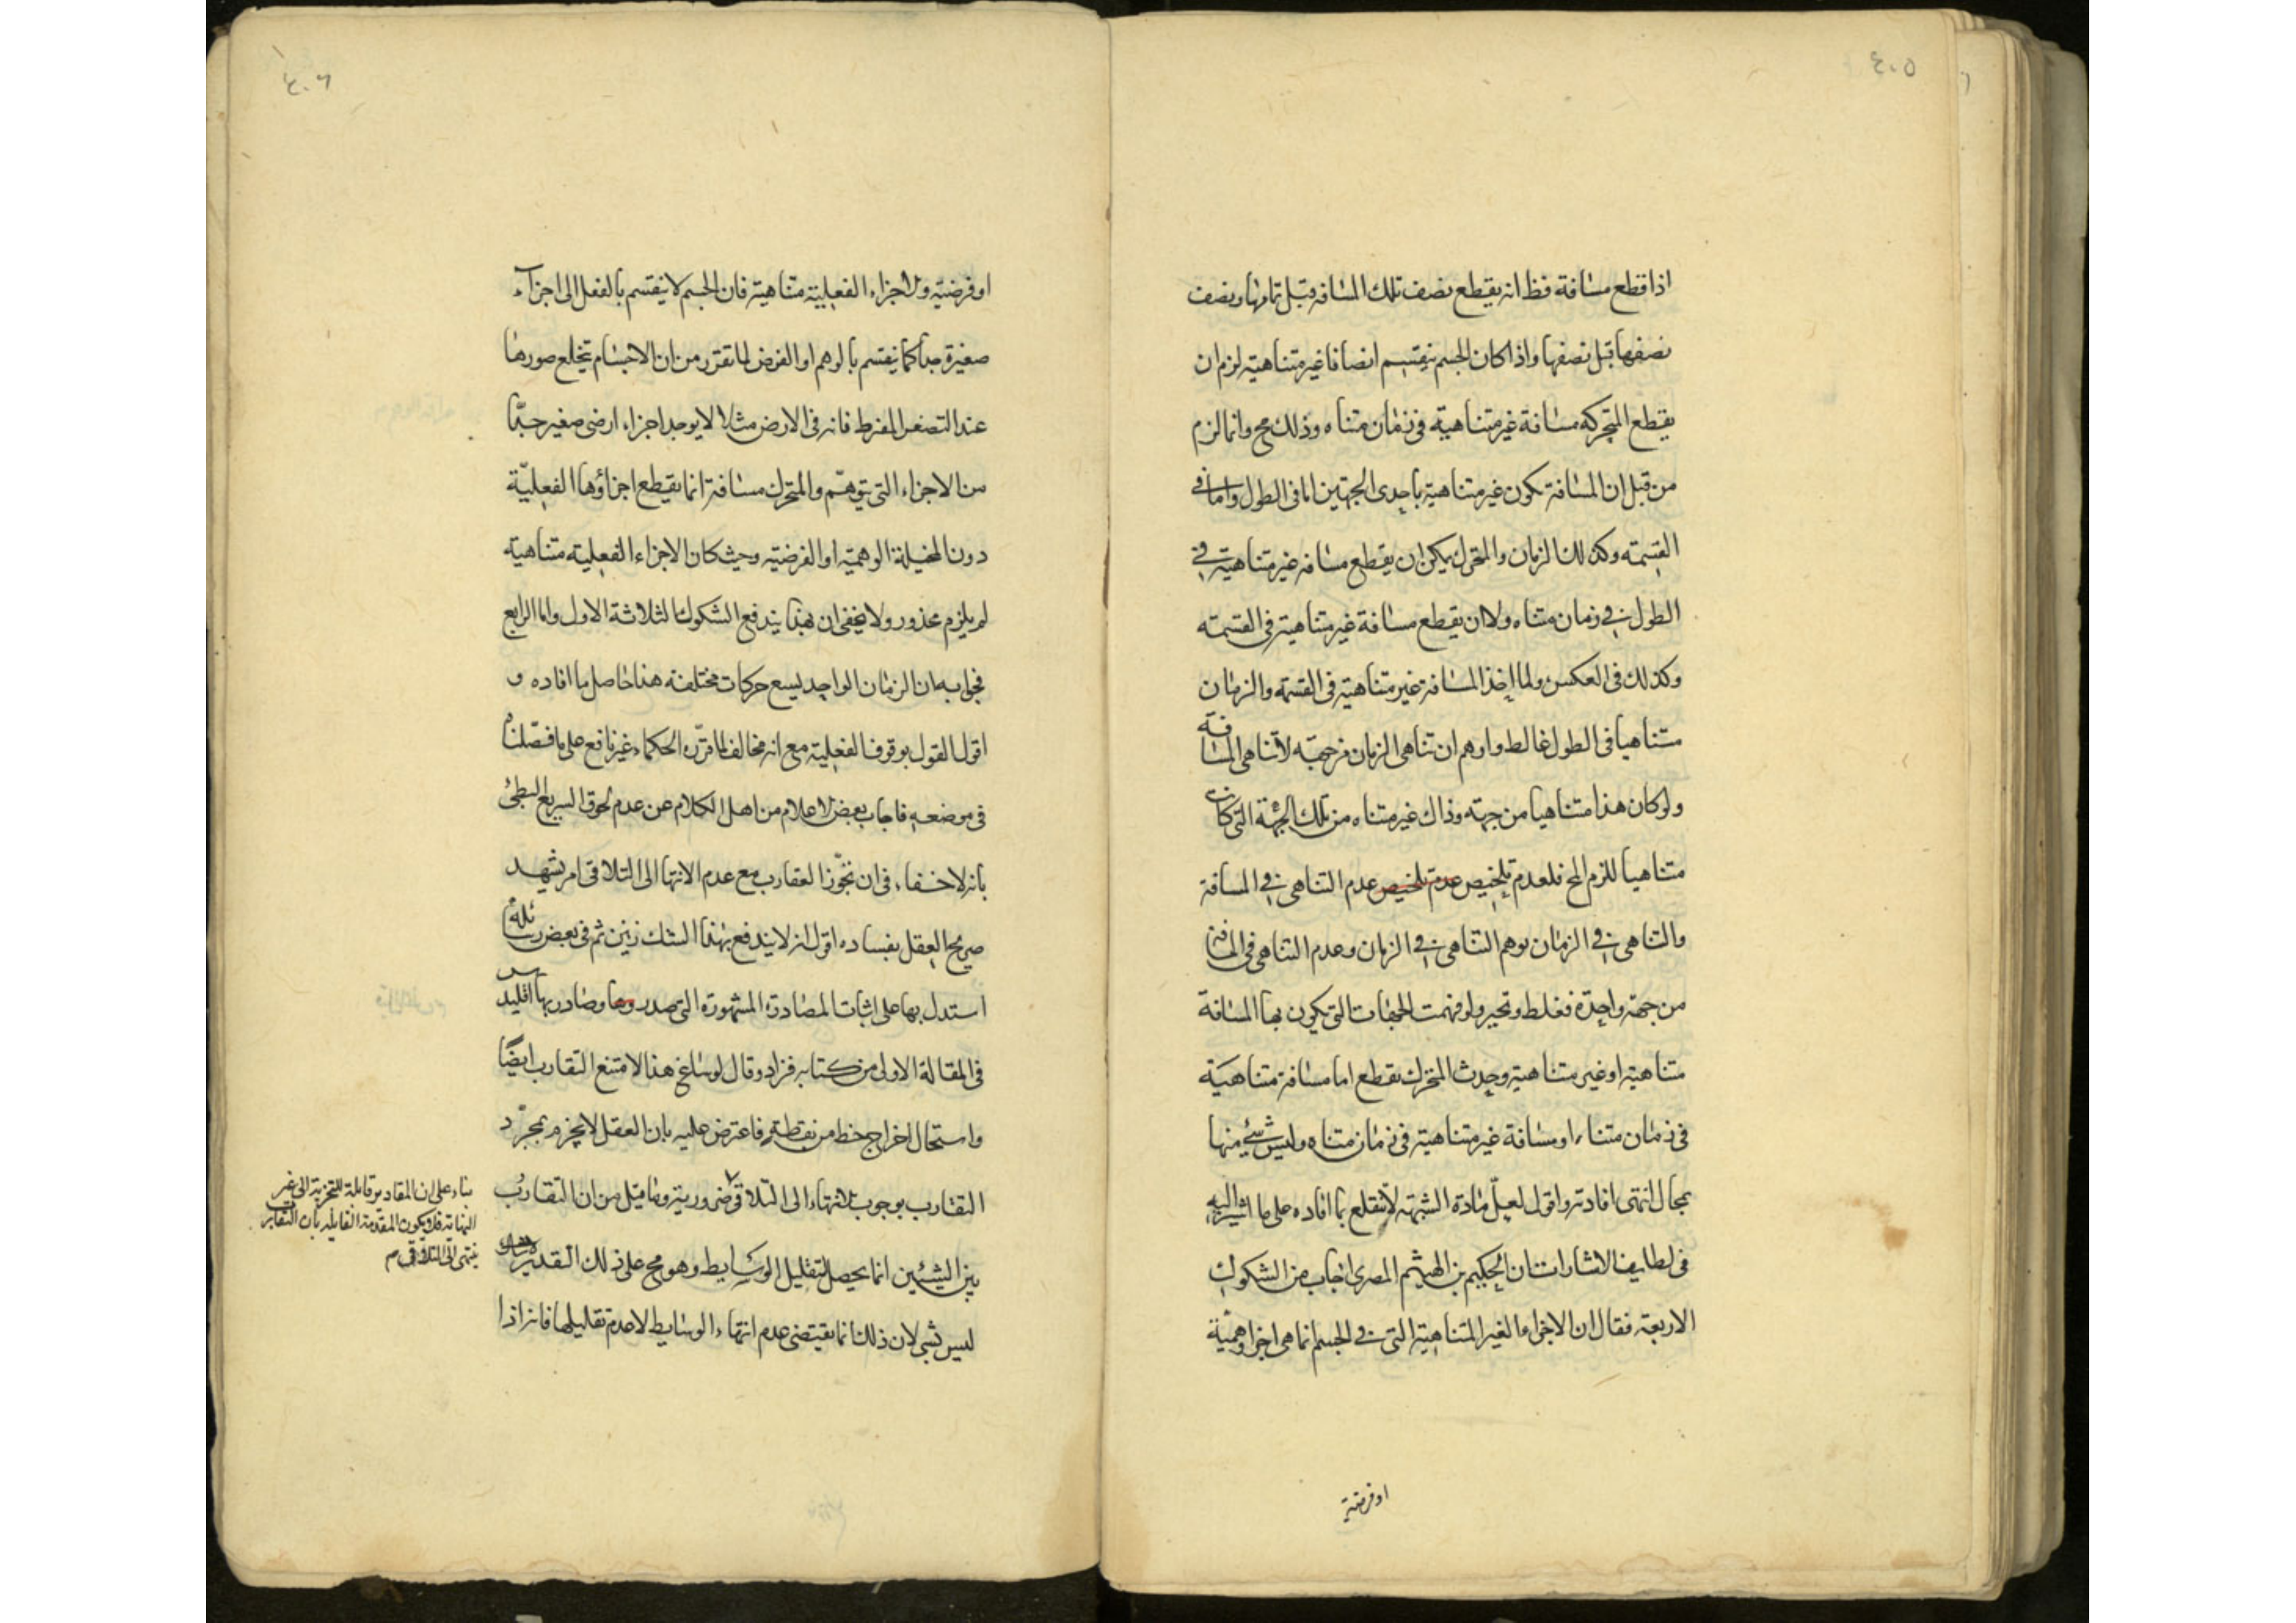 ٤٠٥
اذا قطع مسافة فظ انه يقطع نصف تلك المسافة قبل تمامها ونصف
نصفها قبل نصفها واذا كان الجسم ينقسم انصافا غير متناهية لزم ان
يقطع المتحرك مسافة غير متناهية في زمان متناه وذلك مح وانما لزم
من قبل ان المسافة تكون غير متناهية باحدى الجهتين اما في الطول واما في
القسمة وكذلك الزمان والمتحرك يمكن ان يقطع مسافة غير متناهية في
الطول في زمان متناه ولا ان يقطع مسافة غير متناهية في القسمة
وكذلك في العكس ولما اخذ المسافة غير متناهية في القسمة والزمان
متناهيا في الطول غالط واوهم ان تناهى الزمان من جهة لا تناهى المسافة
ولو كان هذا متناهيا من جهته وذاك غير متناه من تلك الجهة التي كان
متناهيا للزم المح فلعدم تلخيص عدم تلخيص عدم التناهى في المسافة
والتناهى في الزمان يوهم التناهى في الزمان وعدم التناهى في المسافة
من جهة واحدة فغلط وتحير ولو فهمت الجهات التي تكون بها المسافة
متناهية او غير متناهية وجدت المتحرك يقطع اما مسافة متناهية
في زمان متناه او مسافة غير متناهية في زمان متناه وليس شئ منها
بمحال انتهى افادته واقول لعل مادة الشبهة لا تنقلع بما افاده على ما اشير اليه
في لطايف الاشارات ان الحكيم بن الهيثم المصرى اجاب من الشكوك
الاربعة فقال ان الاجزاء الغير المتناهية التي في الجسم انما هى اجزا وهمية
او فرضية
٤٠٦
او فرضيه والاجزاء الفعلية متناهية فان الجسم لا ينقسم بالفعل الى اجزآء
صغيرة جدا كما ينقسم بالوهم او الفرض لما تقرر من ان الاجسام تخلع صورها
عند التصغر المفرط فانه في الارض مثلا لا يوجد اجزاء ارضى صغير جدّا
من الاجزاء التي يتوهّم والمتحرك مسافة انما يقطع اجزاؤها الفعليّة
دون المخيلة الوهمية او الفرضية وحيث كان الاجزاء الفعلية متناهية
لم يلزم محذور ولا يخفى ان بهذا يندفع الشكوك الثلاثة الاول واما الرابع
فجوابه ان الزمان الواحد يسع حركات مختلفة هذا حاصل ما افاده و
اقول القول بوقوف الفعلية مع انه مخالف لما قرّره الحكماء غير نافع على ما فصّلناه
في موضعه فاجاب بعض الاعلام من اهل الكلام عن عدم لحوق السريع البطئ
بانه لا خفاء في ان تجوّز التقارب مع عدم الانتها الى التلاقى امر يشهد
صريح العقل بفساده اقول انه لا يندفع بهذا الشك زينن ثم في بعض رسائله
استدل بها على اثبات المصادرة المشهورة التي صدر وصادر بها اقليدس
في المقالة الاولى من كتابه فزاد وقال لو ساغ هذا لامتنع التقارب ايضًا
واستحال اخراج خط من نقطة فاعترض عليه بان العقل لا يجزم بمجرّد
التقارب بوجوب الانتهاء الى التلاقى ضرورية وما قيل من ان التقارب
بين الشيئين انما يحصل لتقليل الوسايط وهو مح على ذلك التقدير
ليس بشى لان ذلك انما يقتضى عدم انتهاء الوسايط لا عدم تقليلها فانه اذا
بناء على ان المقادير قابلة للتجزية الى غير
النهاية فلا يكون المقدمة القايلة بان التقارب
ينتهى الى التلاقى م